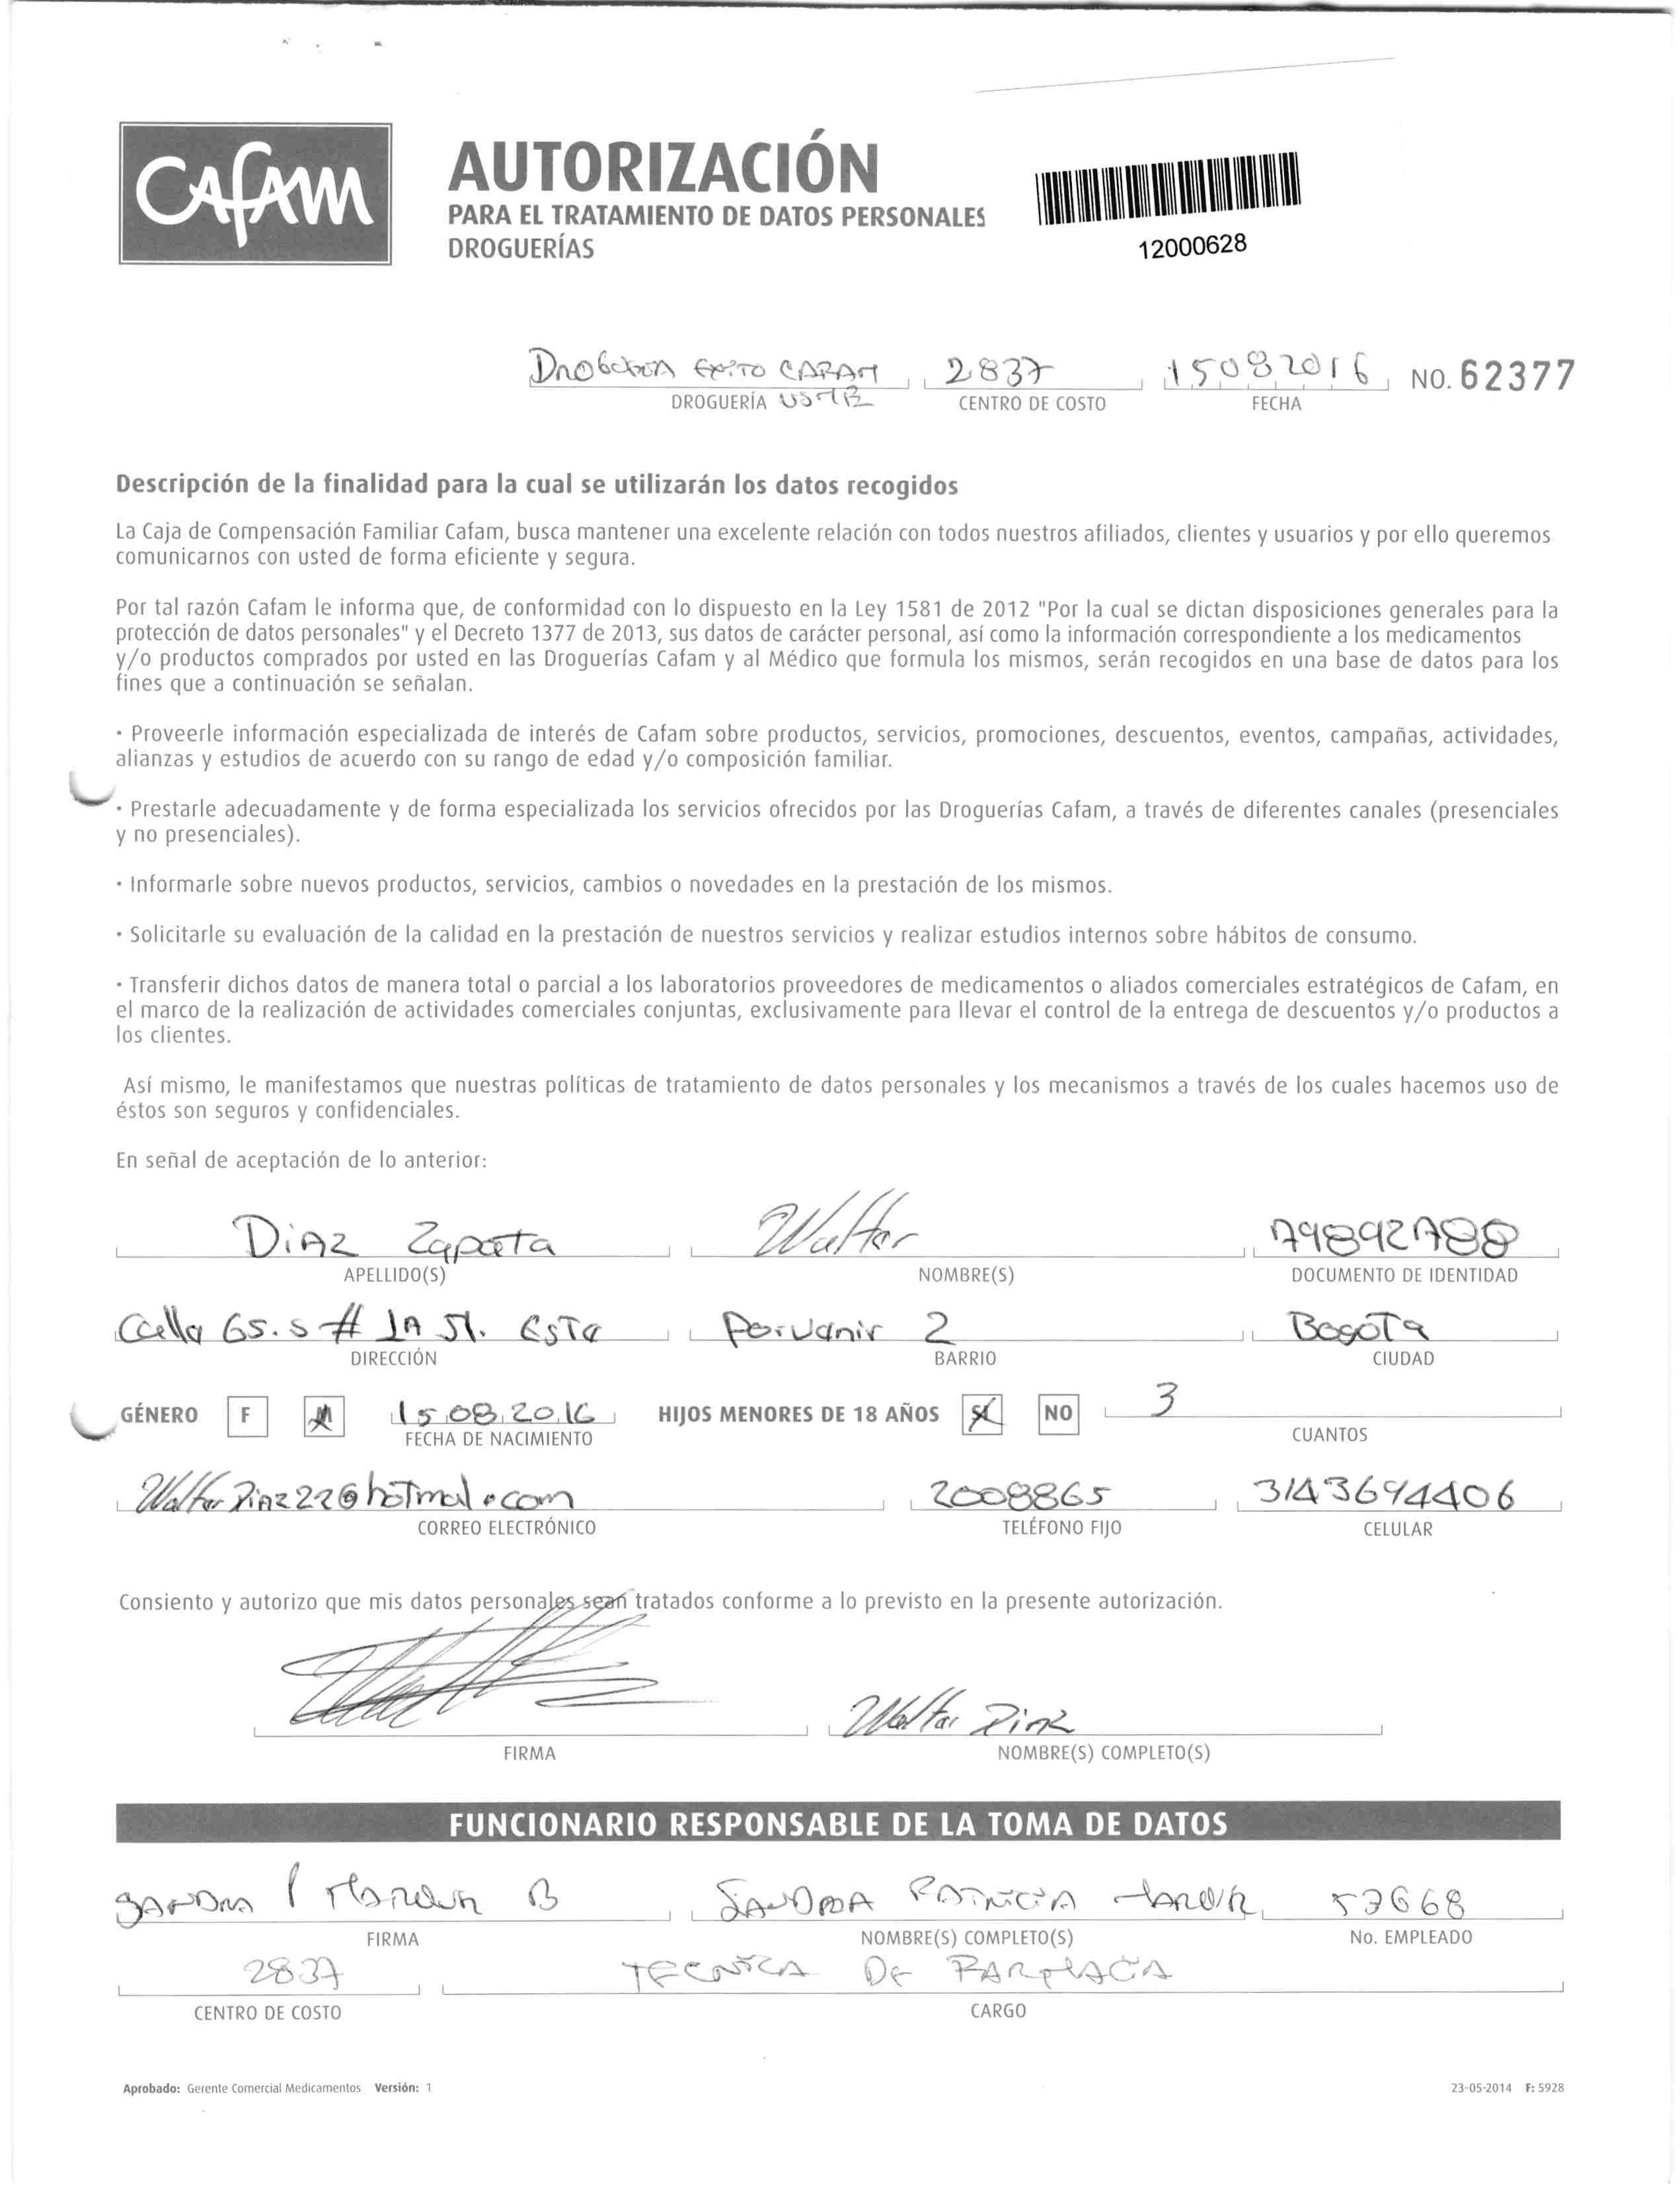 Cafam
AUTORIZACIÓN
PARA EL TRATAMIENTO DE DATOS PERSONALES
DROGUERÍAS
12000628
EXITO CAFAM 2837 15082016 NO. 62377
DROGUERÍA USME CENTRO DE COSTO FECHA
Descripción de la finalidad para la cual se utilizarán los datos recogidos
La Caja de Compensación Familiar Cafam, busca mantener una excelente relación con todos nuestros afiliados, clientes y usuarios y por ello queremos
comunicarnos con usted de forma eficiente y segura.
Por tal razón Cafam le informa que, de conformidad con lo dispuesto en la Ley 1581 de 2012 "Por la cual se dictan disposiciones generales para la
protección de datos personales" y el Decreto 1377 de 2013, sus datos de carácter personal, así como la información correspondiente a los medicamentos
y/o productos comprados por usted en las Droguerías Cafam y al Médico que formula los mismos, serán recogidos en una base de datos para los
fines que a continuación se señalan.
· Proveerle información especializada de interés de Cafam sobre productos, servicios, promociones, descuentos, eventos, campañas, actividades,
alianzas y estudios de acuerdo con su rango de edad y/o composición familiar.
· Prestarle adecuadamente y de forma especializada los servicios ofrecidos por las Droguerías Cafam, a través de diferentes canales (presenciales
y no presenciales).
· Informarle sobre nuevos productos, servicios, cambios o novedades en la prestación de los mismos.
· Solicitarle su evaluación de la calidad en la prestación de nuestros servicios y realizar estudios internos sobre hábitos de consumo.
· Transferir dichos datos de manera total o parcial a los laboratorios proveedores de medicamentos o aliados comerciales estratégicos de Cafam, en
el marco de la realización de actividades comerciales conjuntas, exclusivamente para llevar el control de la entrega de descuentos y/o productos a
los clientes.
Así mismo, le manifestamos que nuestras políticas de tratamiento de datos personales y los mecanismos a través de los cuales hacemos uso de
éstos son seguros y confidenciales.
En señal de aceptación de lo anterior:
Diaz Zapata Walter 79892788
APELLIDO(S) NOMBRE(S) DOCUMENTO DE IDENTIDAD
Calle 65.S # 1A 51. Este Porvenir 2 Bogota
DIRECCIÓN BARRIO CIUDAD
GÉNERO F M 15.08.2016 HIJOS MENORES DE 18 AÑOS SI NO 3
FECHA DE NACIMIENTO CUANTOS
WalterDiaz22@hotmal.com 2008865 3143694406
CORREO ELECTRÓNICO TELÉFONO FIJO CELULAR
Consiento y autorizo que mis datos personales sean tratados conforme a lo previsto en la presente autorización.
Walter Diaz
FIRMA NOMBRE(S) COMPLETO(S)
FUNCIONARIO RESPONSABLE DE LA TOMA DE DATOS
SANDRA B SANDRA PATRICIA 53668
FIRMA NOMBRE(S) COMPLETO(S) No. EMPLEADO
2837 TECNICA DE FARMACIA
CENTRO DE COSTO CARGO
Aprobado: Gerente Comercial Medicamentos Versión: 1 23-05-2014 F: 5928